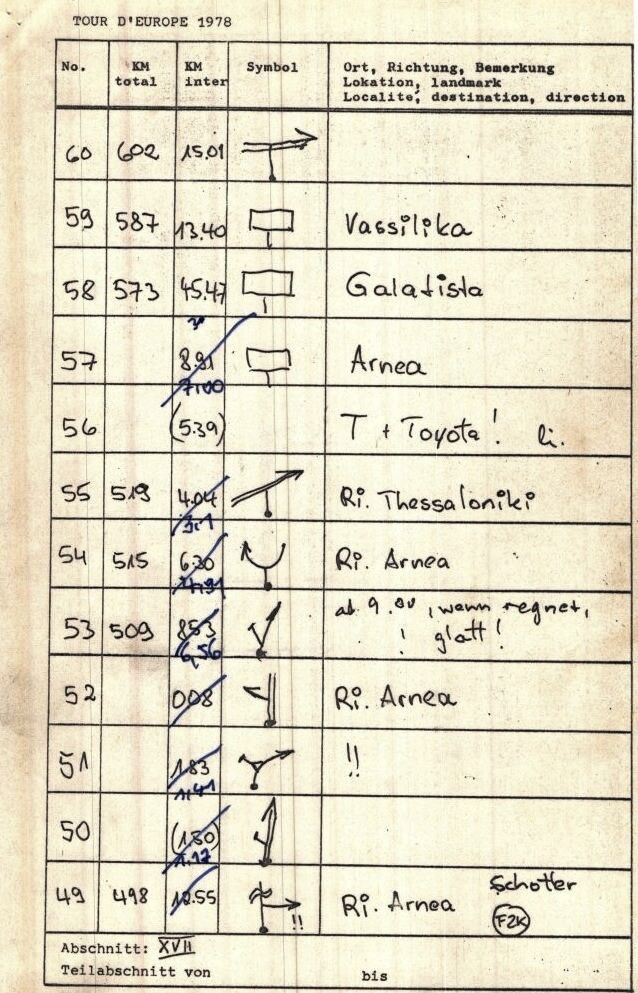 TOUR D'EUROPE 1978
No. KM total KM inter Symbol Ort, Richtung, Bemerkung
Lokation, landmark
Localité, destination, direction
60 602 15.01
59 587 13.40 Vassilika
58 573 45.47 Galatista
57 8.91 Arnea
7.00
56 (5.39) T + Toyota! li.
55 519 4.04 Ri. Thessaloniki
3.1
54 515 6.30 Ri. Arnea
4.91
53 509 853 ab 9.00, wenn regnet,
6,56 ! glatt!
52 008 Ri. Arnea
51 1.83 !!
1.41
50 (1.50)
1.17
49 498 12.55 !! Ri. Arnea Schotter
F2K
Abschnitt: XVII
Teilabschnitt von bis